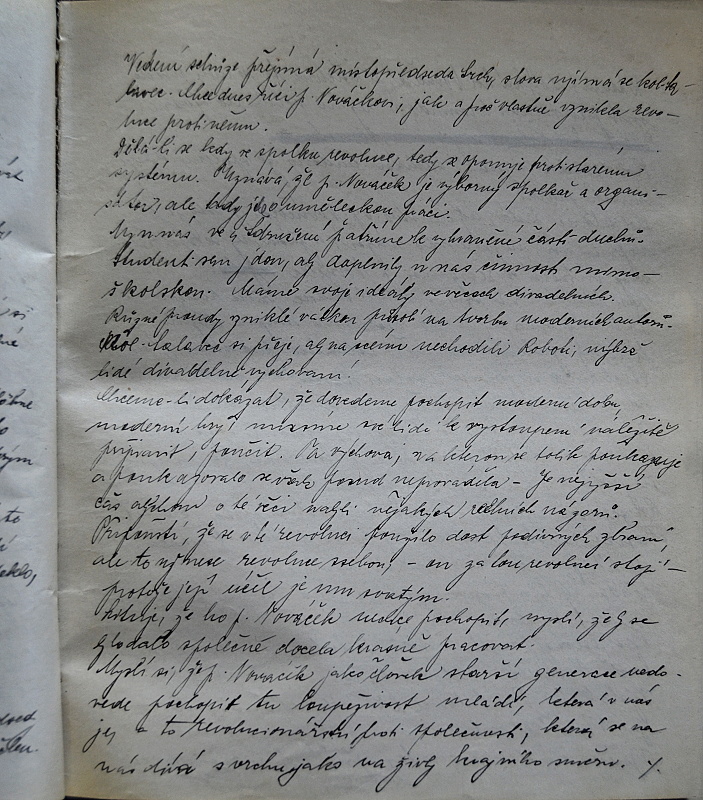 Vedení schůze přejímá místopředseda Srch, slova ujímá se kol. Ta-
lavec. Chce dnes říci p. Nováčkovi, jak a proč vlastně vznikla revo-
luce proti němu.
Dělá-li se kdy ve spolku revoluce, tedy se oponuje proti starému
systému. Uznává, že p. Nováček je výborný spolkař a organi-
sátor, ale tady jde o uměleckou práci.
My u nás v sdružení patříme k vyhraněné části duchů.
Studenti jsou jdou, aby doplnily u nás činnost mimo-
školskou. Máme svoje ideály ve věcech divadelních.
Různé proudy vzniklé válkou působí na tvorbu moderních autorů.
Kol. Talavec si přeje, aby na scenu nechodili Roboti, nýbrž
lidé divadelně vychovaní!
Chceme-li dokázat, že dovedeme pochopit moderní dobu,
moderní hry musíme své lidi k vystoupení náležitě
připravit, poučit. Ta výchova, na kterou se tolik poukazuje
a poukazovalo se však posud neprováděla – Je nejvyšší
čas abychom o té věci nabyli nějakých reelních názorů.
Připouští, že se v té revoluci použilo dost podivných zbraní,
ale to už nese revoluce sebou, – on za tou revolucí stojí –
protože její účel je mu svatým.
že ho p. Nováček nechce pochopit, myslí, že by se
dalo společně docela krásně pracovat.
Myslí si, že p. Nováček jako člověk starší generace nedo-
vede pochopit tu loupeživost mládí, která v nás
je, a to revolucionářství proti společnosti, která se na
nás dívá s vrchu jako na živly krajního směru. ./.